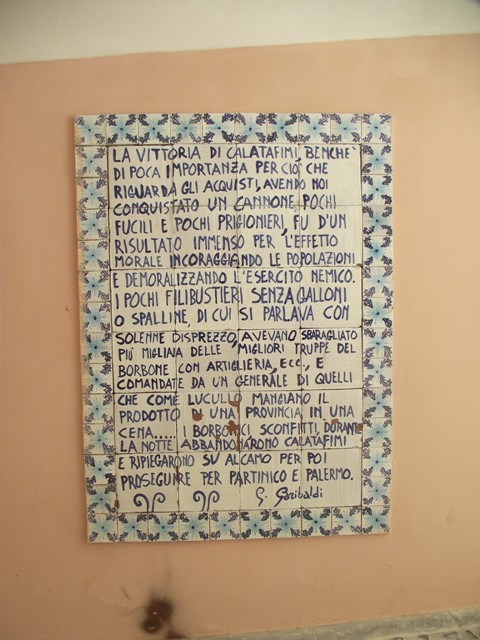 LA VITTORIA DI CALATAFIMI, BENCHE
DI POCA IMPORTANZA PER CIO' CHE
RIGUARDA GLI ACQUISTI, AVENDO NOI
CONQUISTATO UN CANNONE, POCHI
FUCILI E POCHI PRIGIONIERI, FU D'UN
RISULTATO IMMENSO PER L'EFFETTO
MORALE INCORAGGIANDO LE POPOLAZIONI
E DEMORALIZZANDO L'ESERCITO NEMICO.
I POCHI FILIBUSTIERI SENZA GALLONI
O SPALLINE, DI CUI SI PARLAVA CON
SOLENNE DISPREZZO, AVEVANO SBARAGLIATO
PIÙ MIGLIAIA DELLE MIGLIORI TRUPPE DEL
BORBONE CON ARTIGLIERIA, ECC., E
COMANDATE DA UN GENERALE DI QUELLI
CHE COME LUCULLO MANGIANO IL
PRODOTTO UNA PROVINCIA IN UNA
CENA..... I BORBONICI SCONFITTI, DURANTE
LA NOTTE ABBANDONARONO CALATAFIMI
E RIPIEGARONO SU ALCAMO PER POI
PROSEGUIRE PER PARTINICO E PALERMO.
G. Garibaldi